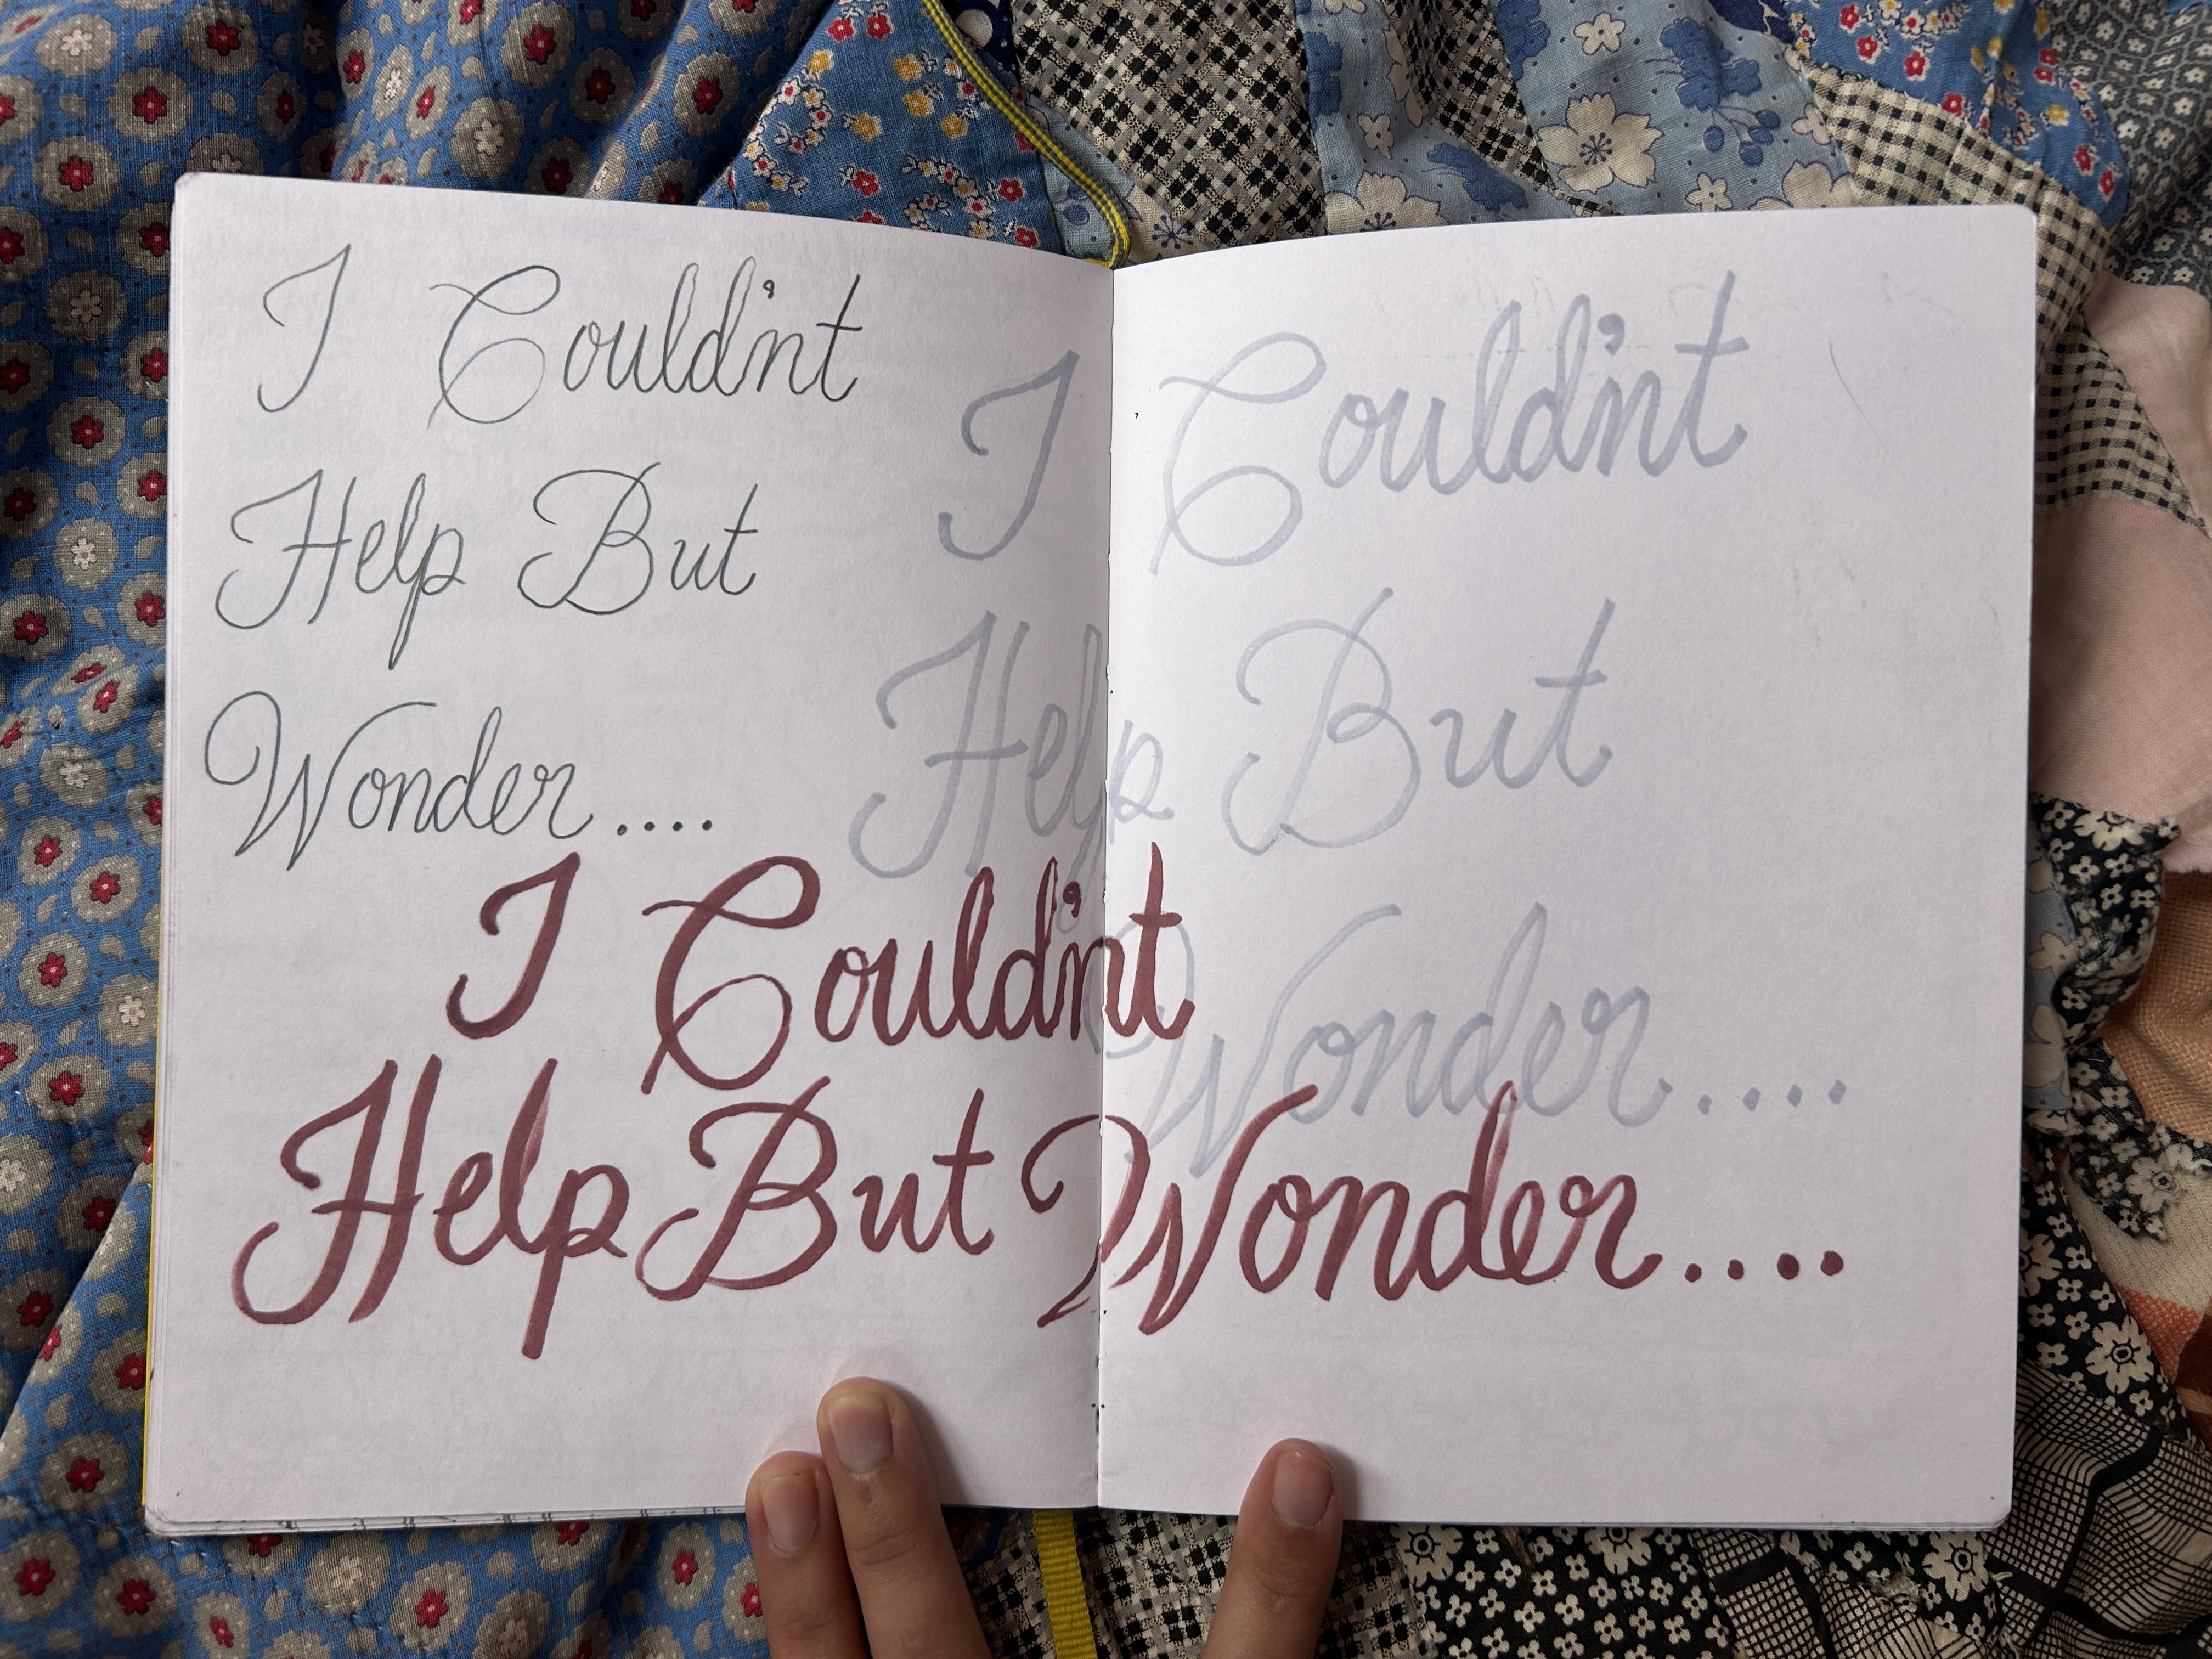 I Could'nt
Help But
Wonder....
I Could'nt
Help But
Wonder....
I Could'nt
Help But Wonder....